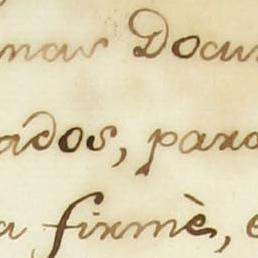 nas Docu
ados, para
a firmè, e